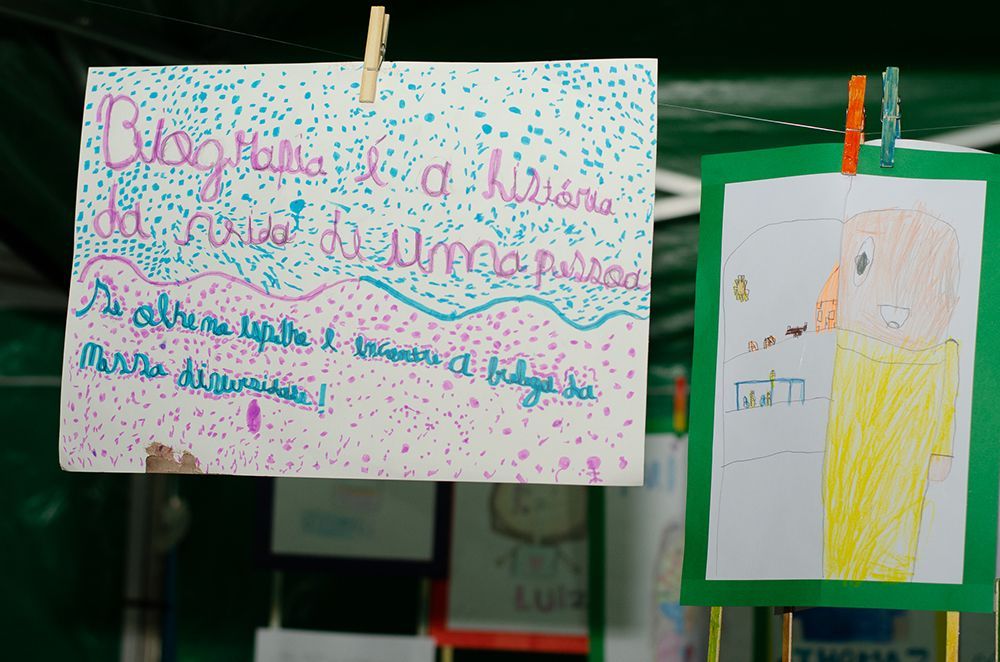 Biografia é a história
da vida de uma pessoa
Se olhe no espelho e encontre a beleza da
nossa diversidade!
LUIZ
THOMAZ